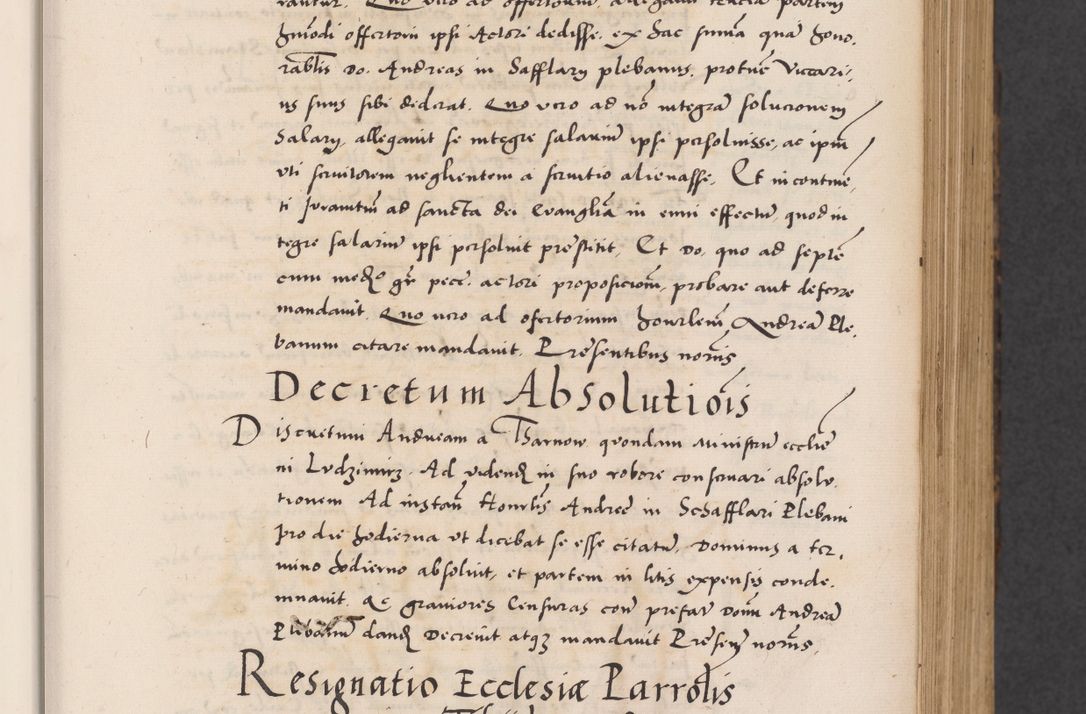 rantur. Quo vero ad offertorium, allegavit terciam partem
hmōdi offertorii ipsi Actori dedisse. ex hac suma quā hono.
rablis Do. Andreas in Safflary plebanus, protunc Viccari,
us suus sibi dederat. Quo vero ad nō integrā solucionem
Salary, allegavit se integre salariū ipsi persolvisse, ac ipm
uti servitorem neglientem a servitio alienasse, Et incontine,
ti Juramtū ad sancta dei Evangliā in enni effectū, quod in
tegre salariū ipsi persolvit prestitit, Et Do, quo ad septē
cum medº gr pecc. actori proposicionī, probare aut deferre
mandavit. Quo vero ad ofertorium honrlem Andreā Ple,
banum citare mandavit. Presentibus norīs
Decretum Absolutiōis
Discretum Andream a Tharnow quondam Ministrū ecclie
ni Ludzimirz. Ad videnđ in suo robore conservari absolu.
tionem Ad instan Honrlis Andree in Schafflari Plebani
pro die hodierna ut dicebat se esse citatū, Dominus a ter,
mino hodierno absolvit, et partem in litis expensis conde.
mnavit. Ac graviores Censuras con prefat Donū Andreā
Plebanū danđ Decrevit atqz mandavit Presen norīs,
Resignatio Ecclesiæ Parrolis